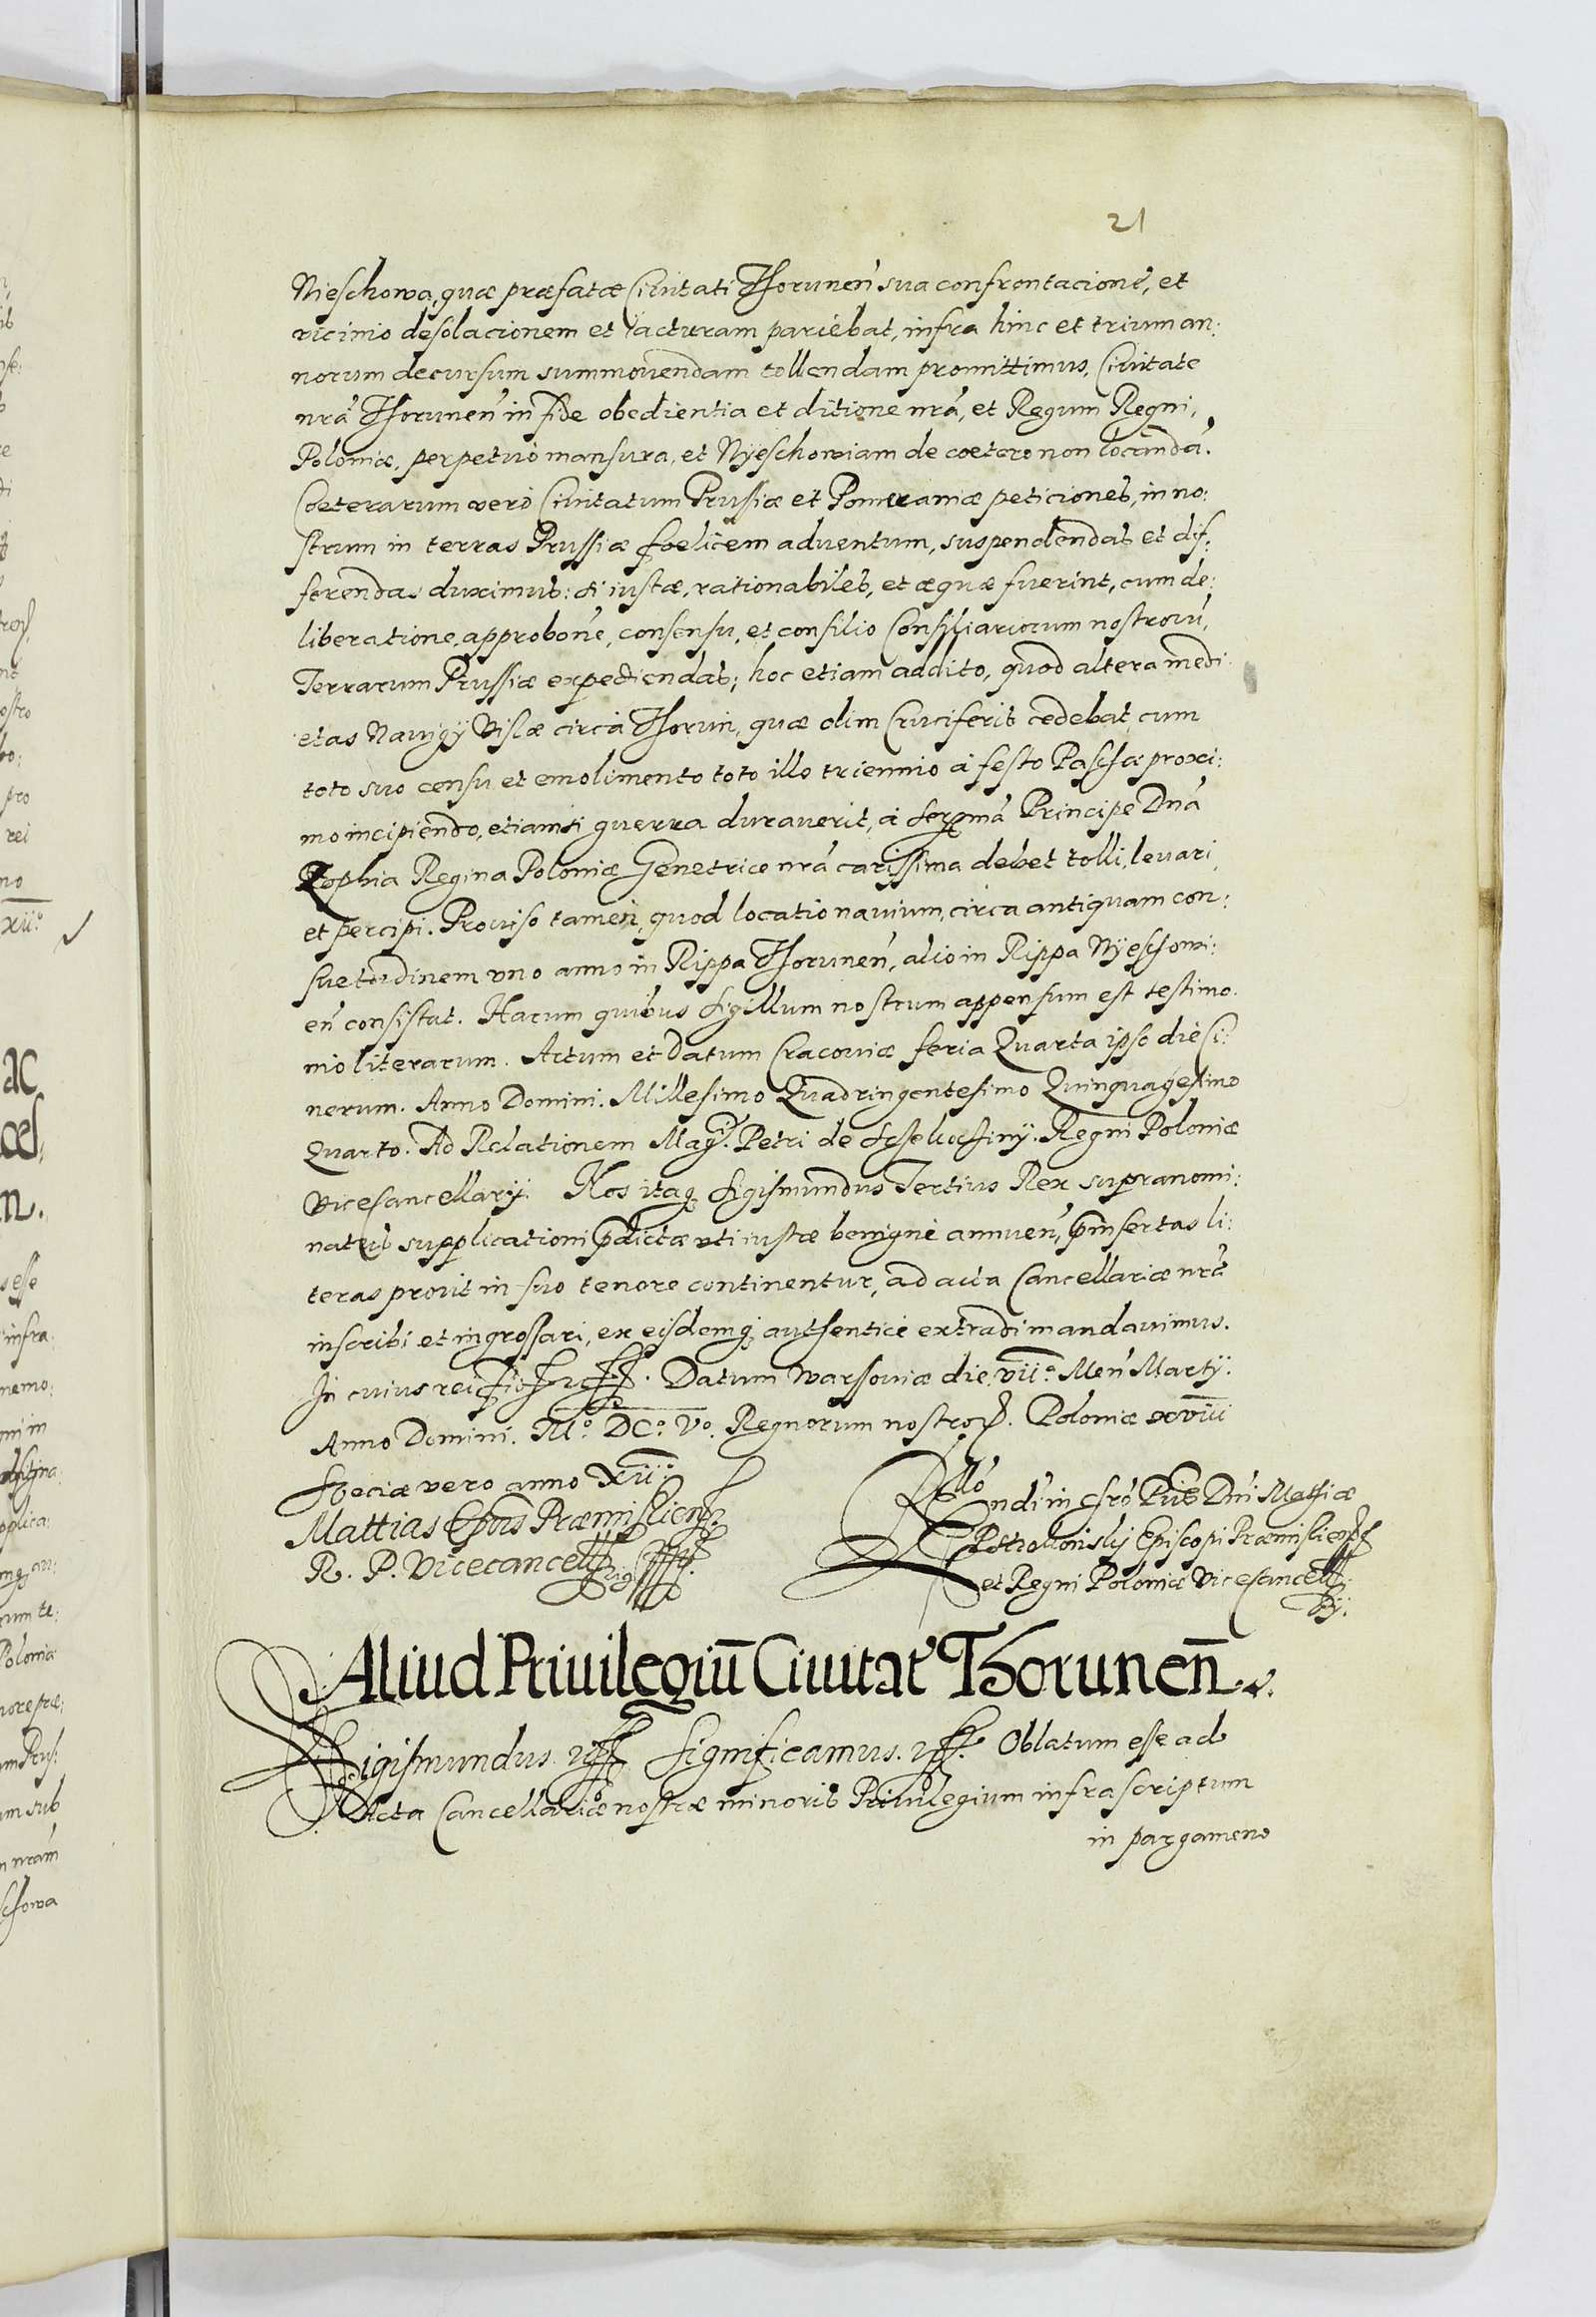 21
Nieschowa, quæ præfatæ Ciuitati Thorunen̄ sua confrontacione, et
vicinio desolacionem et iacturam pariebat, infra hinc et trium an:
norum decursum summouendam tollendam promittimus, Ciuitate
nr̄a Thorunen̄ in fide obedientia et ditione nr̄a, et Regum Regni,
Poloniæ, perpetuò mansura, et Nyeschowiam de coetero non locandā.
Coeterarum verò Ciuitatum Prussiæ et Pomeraniæ peticiones, in no:
strum in terras Prussiæ foelicem aduentum, suspendendas et dif:
ferendas duximus: si iustæ, rationabiles, et æquæ fuerint, cum de:
liberatione, approbon̄e, consensu, et consilio Consiliariorum nostrorū,
Terrarum Prussiæ expediendas; hoc etiam addito, quod altera medi:
etas Nauigÿ Vislæ circà Thorun, quæ olim Cruciferis cedebat, cum
toto suo censu et emolimento toto illo triennio à festo Paschæ proxi:
mo incipiendo, etiamsi guerra durauerit, à serᵐā Principe Dn̄a
Zophia Regina Poloniæ Genetrice nr̄a carissima debet tolli, leuari,
et percipi. Prouiso tamen, quod locatio nauium, circa antiquam con:
suetudinem vno anno in Rippa Thorunen̄, alio in Rippa Nyeschowi:
en̄ consistat. Harum quibus sigillum nostrum appensum est testimo:
nio literarum. Actum et datum Cracouiæ feria Quarta ipso die Ci:
nerum. Anno Domini. Millesimo Quadringentesimo Quinquagesimo
Quarto. Ad Relationem Mag̃ci. Petri de Regni Poloniæ
Vicecancellarÿ. Nos itaq̨ Sigismundus Tertius Rex supranomi:
natus supplicationi p̄dictæ vti iustæ benignè annuen̄, p̄insertas li:
teras prout in suo tenore continentur, ad acta Cancellariæ nr̄æ
inscribi et ingrossari, ex eisdemq̨ authenticè extradi mandauimus.
In cuius rei Datum Warssouiæ die vii° Men̄ Martÿ.
Anno Domini. M° DC° V°. Regnorum nostroꝝ. Poloniæ xviii
Sveciæ vero anno XII°
Mattias Ep̄us Præmislien
R. P. Vicecancell
Rel̄lo
Petri Episcopi Præmislien
et Regni Poloniæ Vicecancell
rÿ.
Aliud Priuilegiū Ciuitat̄ Thorunen̄
Sigismundus Significamus Oblatum esse ad
Acta Cancellariæ nostræ minoris Priuilegium infrascriptum
in pargameno